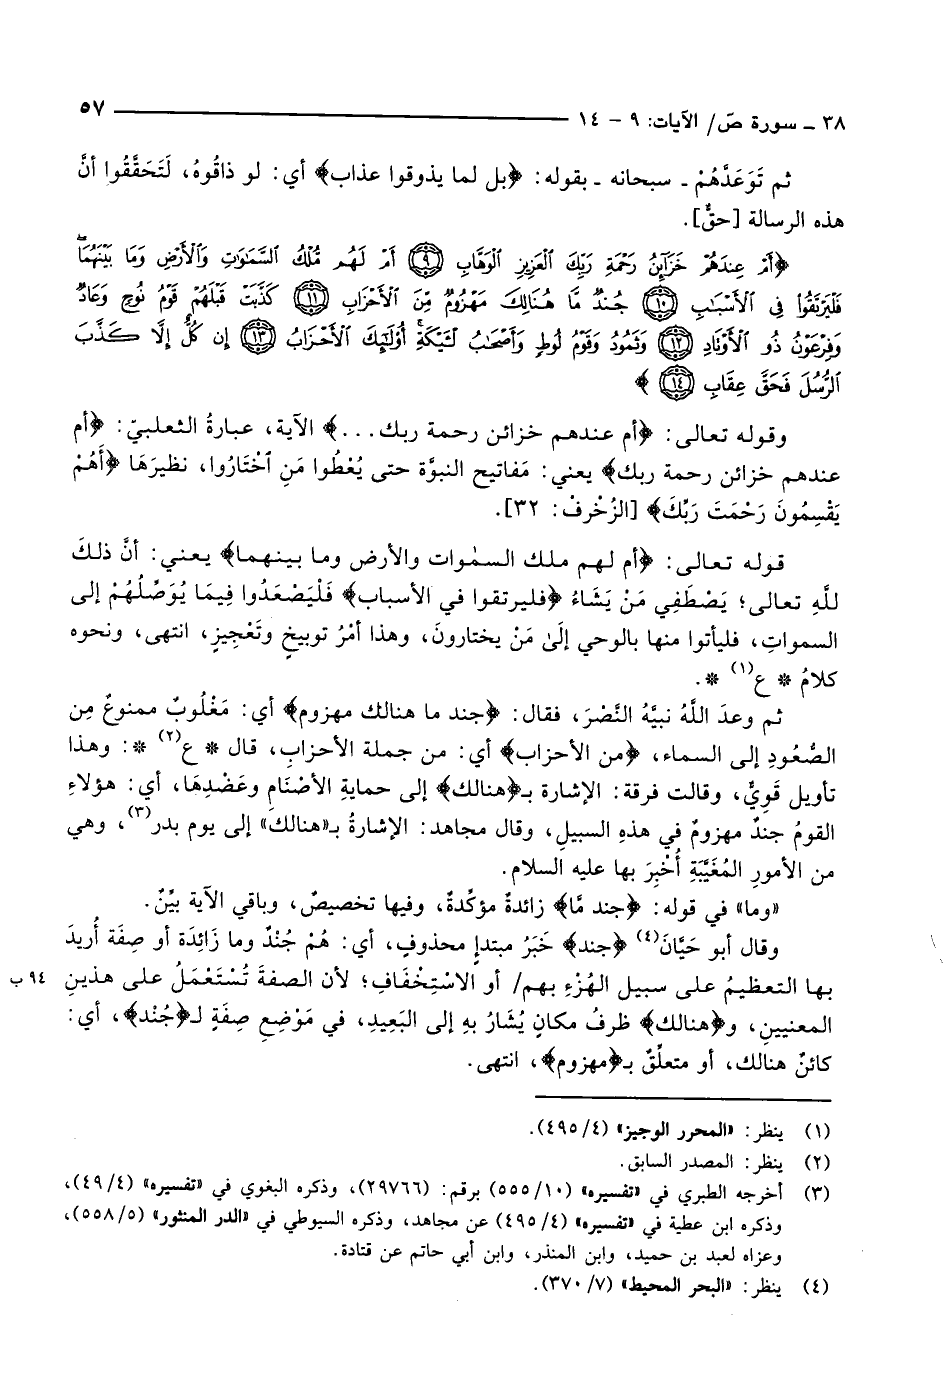 ٣٨ ـ سورة صَ/ الآيات: ٩ - ١٤ ٥٧
ثم تَوَعَّدَهُمْ ـ سبحانه ـ بقوله: ﴿بل لما يذوقوا عذاب﴾ أي: لو ذاقُوهُ، لَتَحَقَّقُوا أنَّ
هذه الرسالة [حقٌّ].
﴿أَمْ عِندَهُمْ خَزَآئِنُ رَحْمَةِ رَبِّكَ ٱلْعَزِيزِ ٱلْوَهَّابِ ۝٩ أَمْ لَهُم مُّلْكُ ٱلسَّمَٰوَٰتِ وَٱلْأَرْضِ وَمَا بَيْنَهُمَا ۖ
فَلْيَرْتَقُوا۟ فِى ٱلْأَسْبَٰبِ ۝١٠ جُندٌ مَّا هُنَالِكَ مَهْزُومٌ مِّنَ ٱلْأَحْزَابِ ۝١١ كَذَّبَتْ قَبْلَهُمْ قَوْمُ نُوحٍ وَعَادٌ
وَفِرْعَوْنُ ذُو ٱلْأَوْتَادِ ۝١٢ وَثَمُودُ وَقَوْمُ لُوطٍ وَأَصْحَٰبُ لْـَٔيْكَةِ ۚ أُو۟لَٰٓئِكَ ٱلْأَحْزَابُ ۝١٣ إِن كُلٌّ إِلَّا كَذَّبَ
ٱلرُّسُلَ فَحَقَّ عِقَابِ ۝١٤﴾
وقوله تعالى: ﴿أم عندهم خزائن رحمة ربك...﴾ الآية، عبارةُ الثعلبيّ: ﴿أم
عندهم خزائن رحمة ربك﴾ يعني: مَفاتيح النبوَّة حتى يُعْطُوا مَنِ ٱخْتَارُوا، نظيرَهَا ﴿أَهُمْ
يَقْسِمُونَ رَحْمَتَ رَبِّكَ﴾ [الزُخْرفْ: ٣٢].
قوله تعالى: ﴿أم لهم ملك السمٰوات والأرض وما بينهما﴾ يعني: أنَّ ذلكَ
للَّهِ تعالى؛ يَصْطَفِي مَنْ يَشَاءُ ﴿فليرتقوا في الأسباب﴾ فَلْيَصْعَدُوا فِيمَا يُوَصِّلُهُمْ إلى
السمواتِ، فليأتوا منها بالوحي إلَىٰ مَنْ يختارون، وهذا أمْرُ توبيخٍ وتَعْجِيزٍ، انتهى، ونحوه
كلامُ * ع(١) *.
ثم وعدَ اللَّهُ نبيَّهُ النَّصْرَ، فقال: ﴿جند ما هنالك مهزوم﴾ أي: مَغْلُوبٌ ممنوعٌ مِن
الصُّعُودِ إلى السماء، ﴿من الأحزاب﴾ أي: من جملة الأحزابِ، قال * ع(٢) *: وهذا
تأويل قَوِيٌّ، وقالت فرقة: الإشارة بـ﴿هنالك﴾ إلى حمايةِ الأصْنَامِ وعَضْدِهَا، أي: هؤلاءِ
القومُ جندٌ مهزومٌ في هذهِ السبيلِ، وقال مجاهد: الإشارةُ بـ«هنالك» إلى يوم بدر(٣)، وهي
من الأمورِ المُغَيَّبَةِ أُخْبِرَ بها عليه السلام.
«وما» في قوله: ﴿جند مَّا﴾ زائدةٌ مؤكِّدةٌ، وفيها تخصيصٌ، وباقي الآية بيِّنٌ.
وقال أبو حَيَّانَ(٤) ﴿جند﴾ خَبَرُ مبتدإٍ محذوفٍ، أي: هُمْ جُنْدٌ وما زَائِدَة أو صِفَة أُريدَ
بها التعظيمُ على سبيل الهُزْءِ بهم/ أو الاسْتِخْفَافِ؛ لأن الصفةَ تُسْتَعْمَلُ على هذينِ ٩٤ ب
المعنيينِ، و﴿هنالك﴾ ظرفُ مكانٍ يُشَارُ بهِ إلى البَعِيدِ، في مَوْضِعِ صِفَةٍ لـ﴿جُنْد﴾، أي:
كائنٌ هنالك، أو متعلِّقٌ بـ﴿مهزوم﴾، انتهى.
(١) ينظر: «المحرر الوجيز» (٤/ ٤٩٥).
(٢) ينظر: المصدر السابق.
(٣) أخرجه الطبري في «تفسيره» (١٠/ ٥٥٥) برقم: (٢٩٧٦٦)، وذكره البغوي في «تفسيره» (٤/ ٤٩)،
وذكره ابن عطية في «تفسيره» (٤/ ٤٩٥) عن مجاهد، وذكره السيوطي في «الدر المنثور» (٥/ ٥٥٨)،
وعزاه لعبد بن حميد، وابن المنذر، وابن أبي حاتم عن قتادة.
(٤) ينظر: «البحر المحيط» (٧/ ٣٧٠).